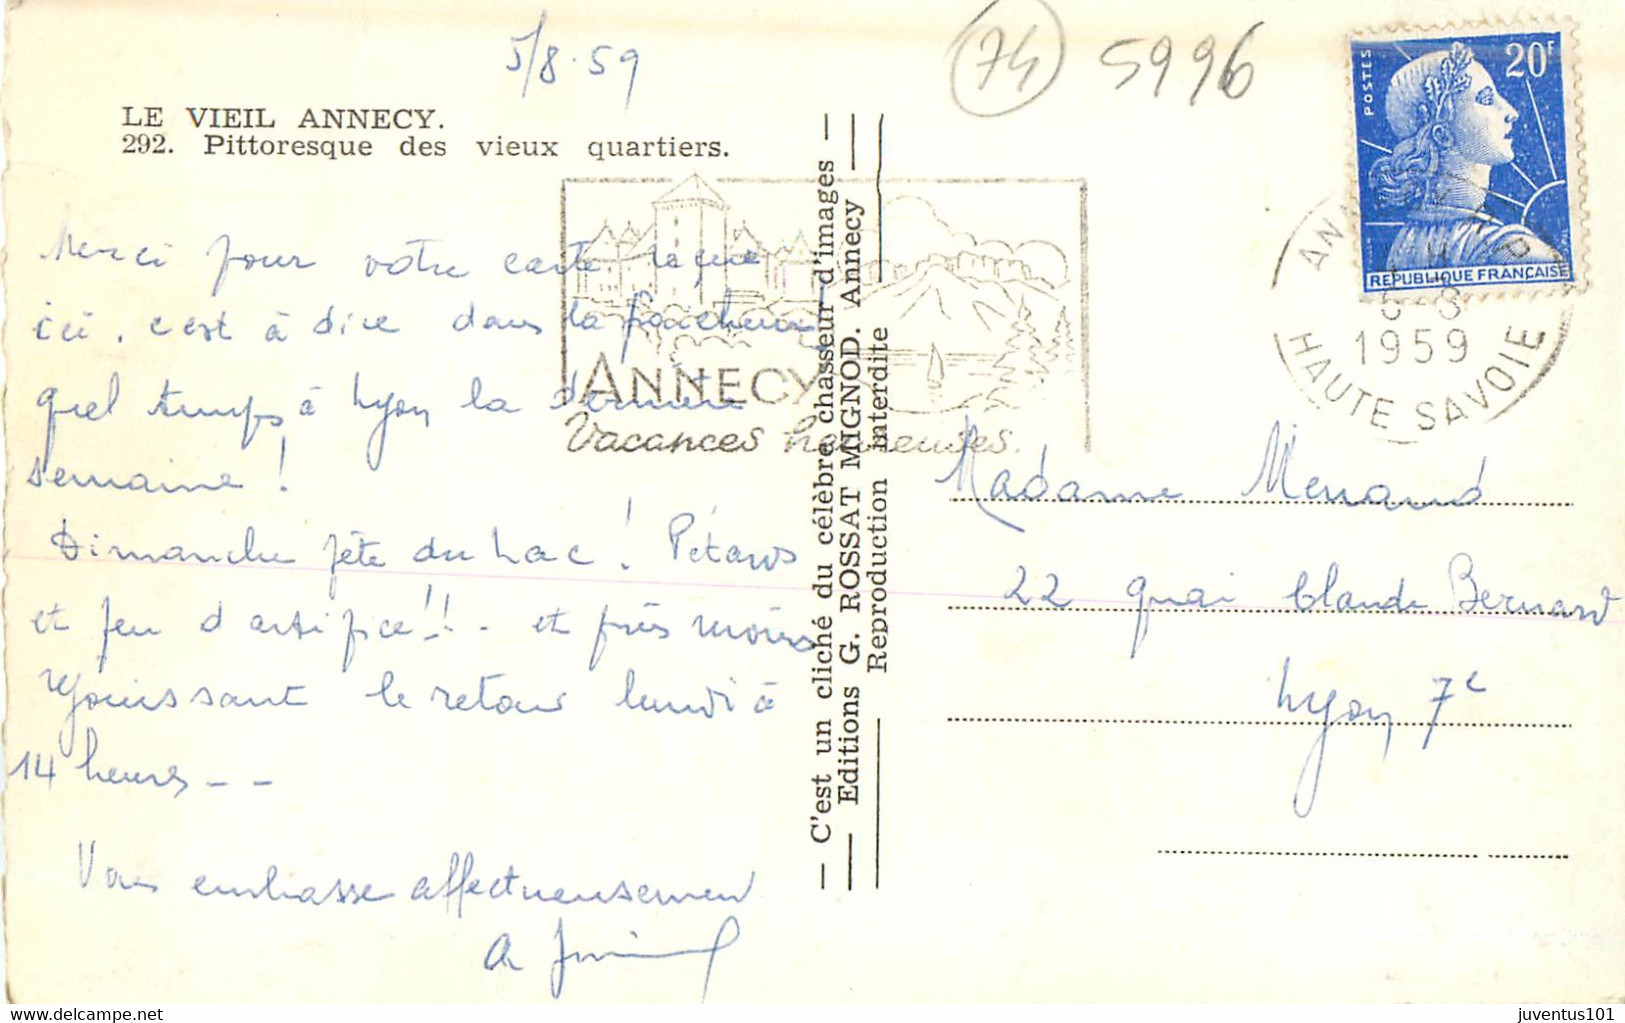 5/8.59
74
5996
LE VIEIL ANNECY.
292. Pittoresque des vieux quartiers.
Merci pour votre carte reçue
ici, c'est à dire dans la fraicheur,
quel temps à Lyon la dernière
semaine!
Dimanche fête du Lac! Pétards
et feu d'artifice!!- et près moins
réjouissant le retour lundi à
14 heures - -
Vous embrasse affectueusement
C'est un cliché du célèbre chasseur d'images
Editions G. ROSSAT MIGNOD. Annecy
Reproduction interdite
ANNECY
Vacances heureuses.
POSTES
20F
REPUBLIQUE FRANÇAISE
ANNECY R.P.
5-8
1959
HAUTE SAVOIE
Madame
22 quai Claude Bernard
Lyon 7e
juventus101